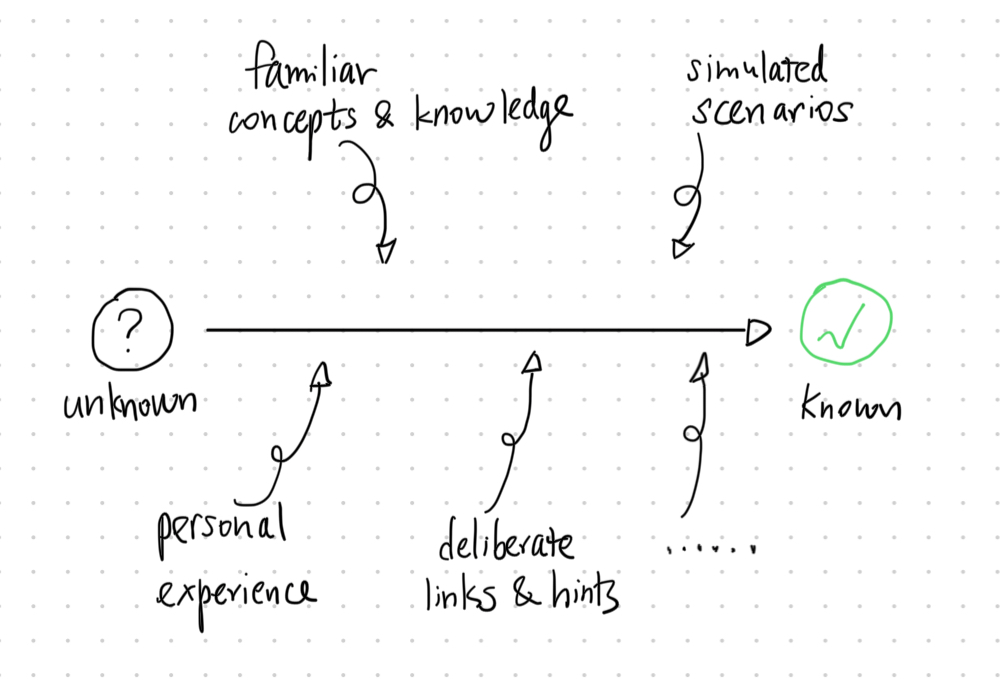 familiar
concepts & knowledge
simulated
scenarios
?
unknown
known
personal
experience
deliberate
links & hints
.......